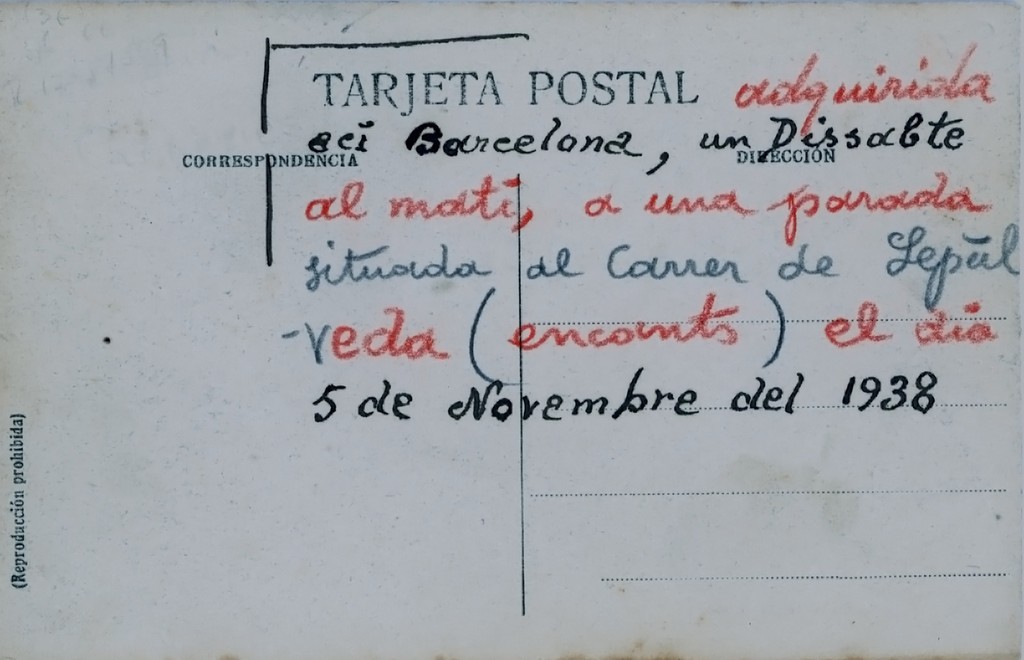 TARJETA POSTAL adquirida
ací Barcelona, un Dissabte
CORRESPONDENCIA
DIRECCIÓN
al matí, a una parada
situada al Carrer de Sepúl
-veda (encants) el dia
5 de Novembre del 1938
(Reproducción prohibida)